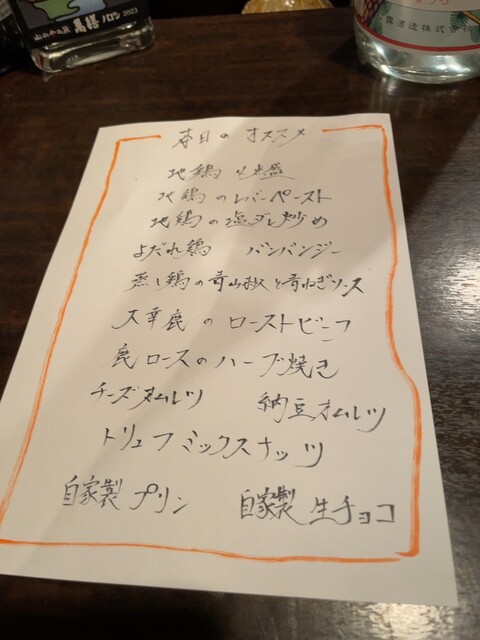 萬膳 ノロシ 2023
露酒造株式会
本日のオススメ
地鶏 4点盛
地鶏のレバーペースト
地鶏の塩ダレ炒め
よだれ鶏 バンバンジー
蒸し鶏の青山椒と青ねぎソース
天幸鹿のローストビーフ
鹿ロースのハーブ焼き
チーズオムレツ 納豆オムレツ
トリュフミックスナッツ
自家製プリン 自家製生チョコ